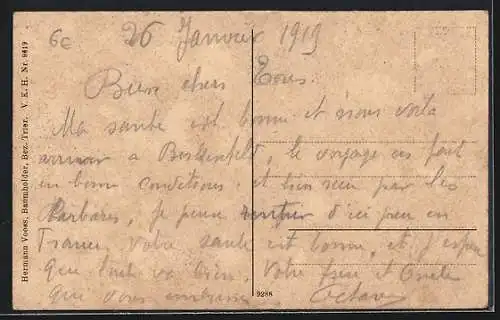 6e
26 Janvier 1919
Bien chers Tous
Ma santé est bonne et nous voila
a Birkenfelt, le voyage ces fait
en bonne conditions et bien recu par les
Barbares, je pense rentrer d'ici peu en
France, votre sante est bonne, et j'espere
que tout va bien, Votre frere et Oncle
que vous Octave
Hermann Vooes, Baumholder, Bez. Trier. V. K. H. Nr. 9419
9288